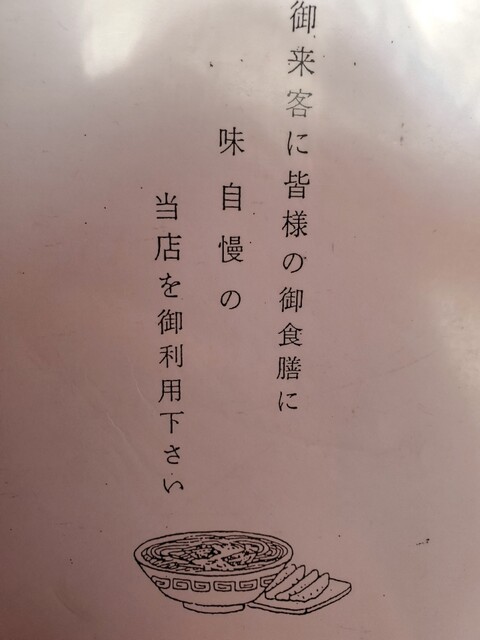 御来客に皆様の御食膳に
味自慢の
当店を御利用下さい